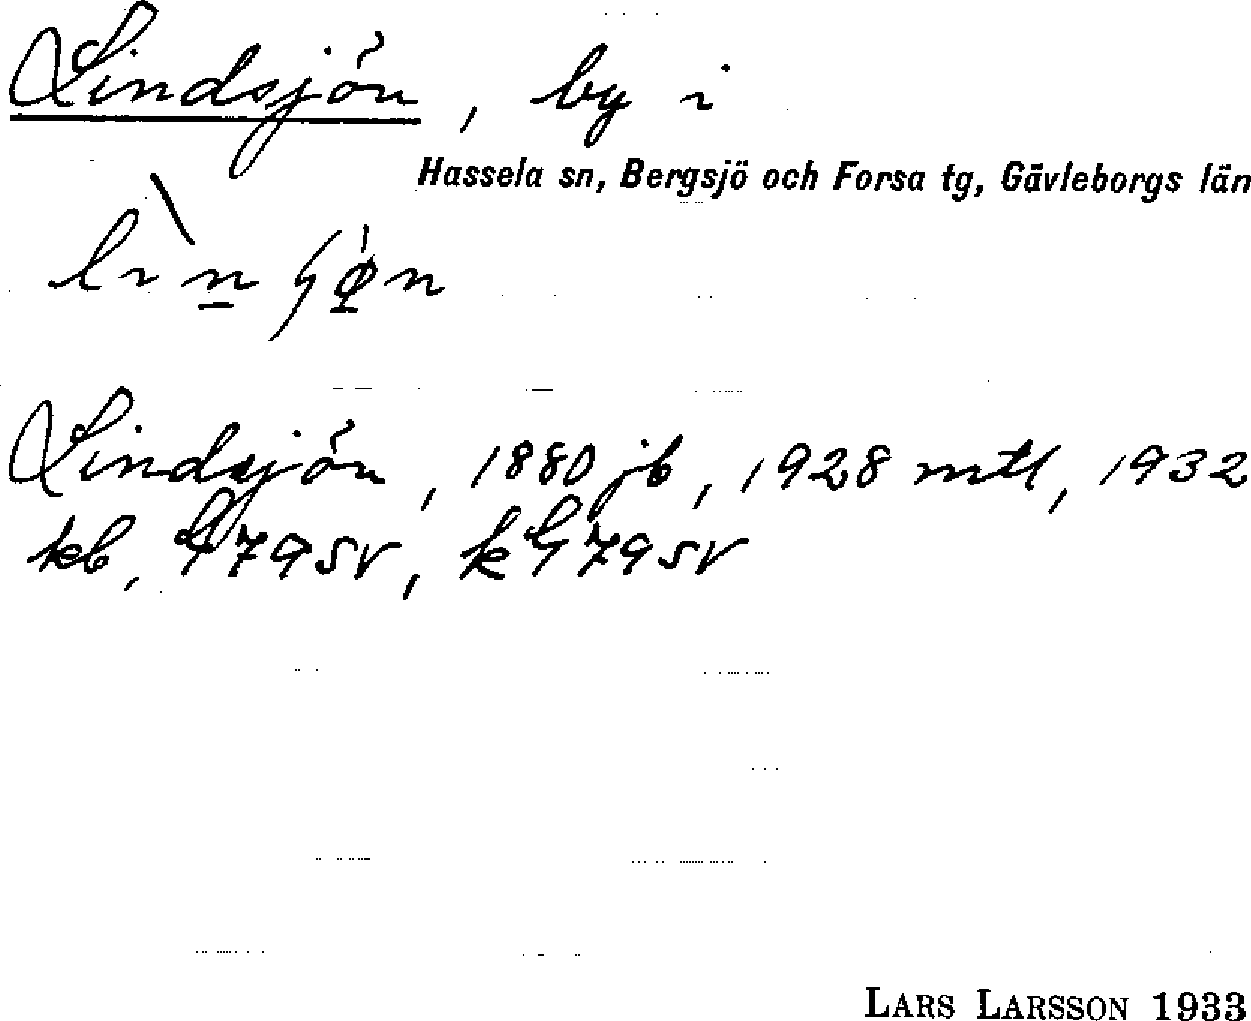 Lindsjön, by i
Hassela sn, Bergsjö och Forsa tg, Gävleborgs län
Lindsjön, 1880 jb, 1928 mtl, 1932
kb, G79SV, kG79SV
LARS LARSSON 1933